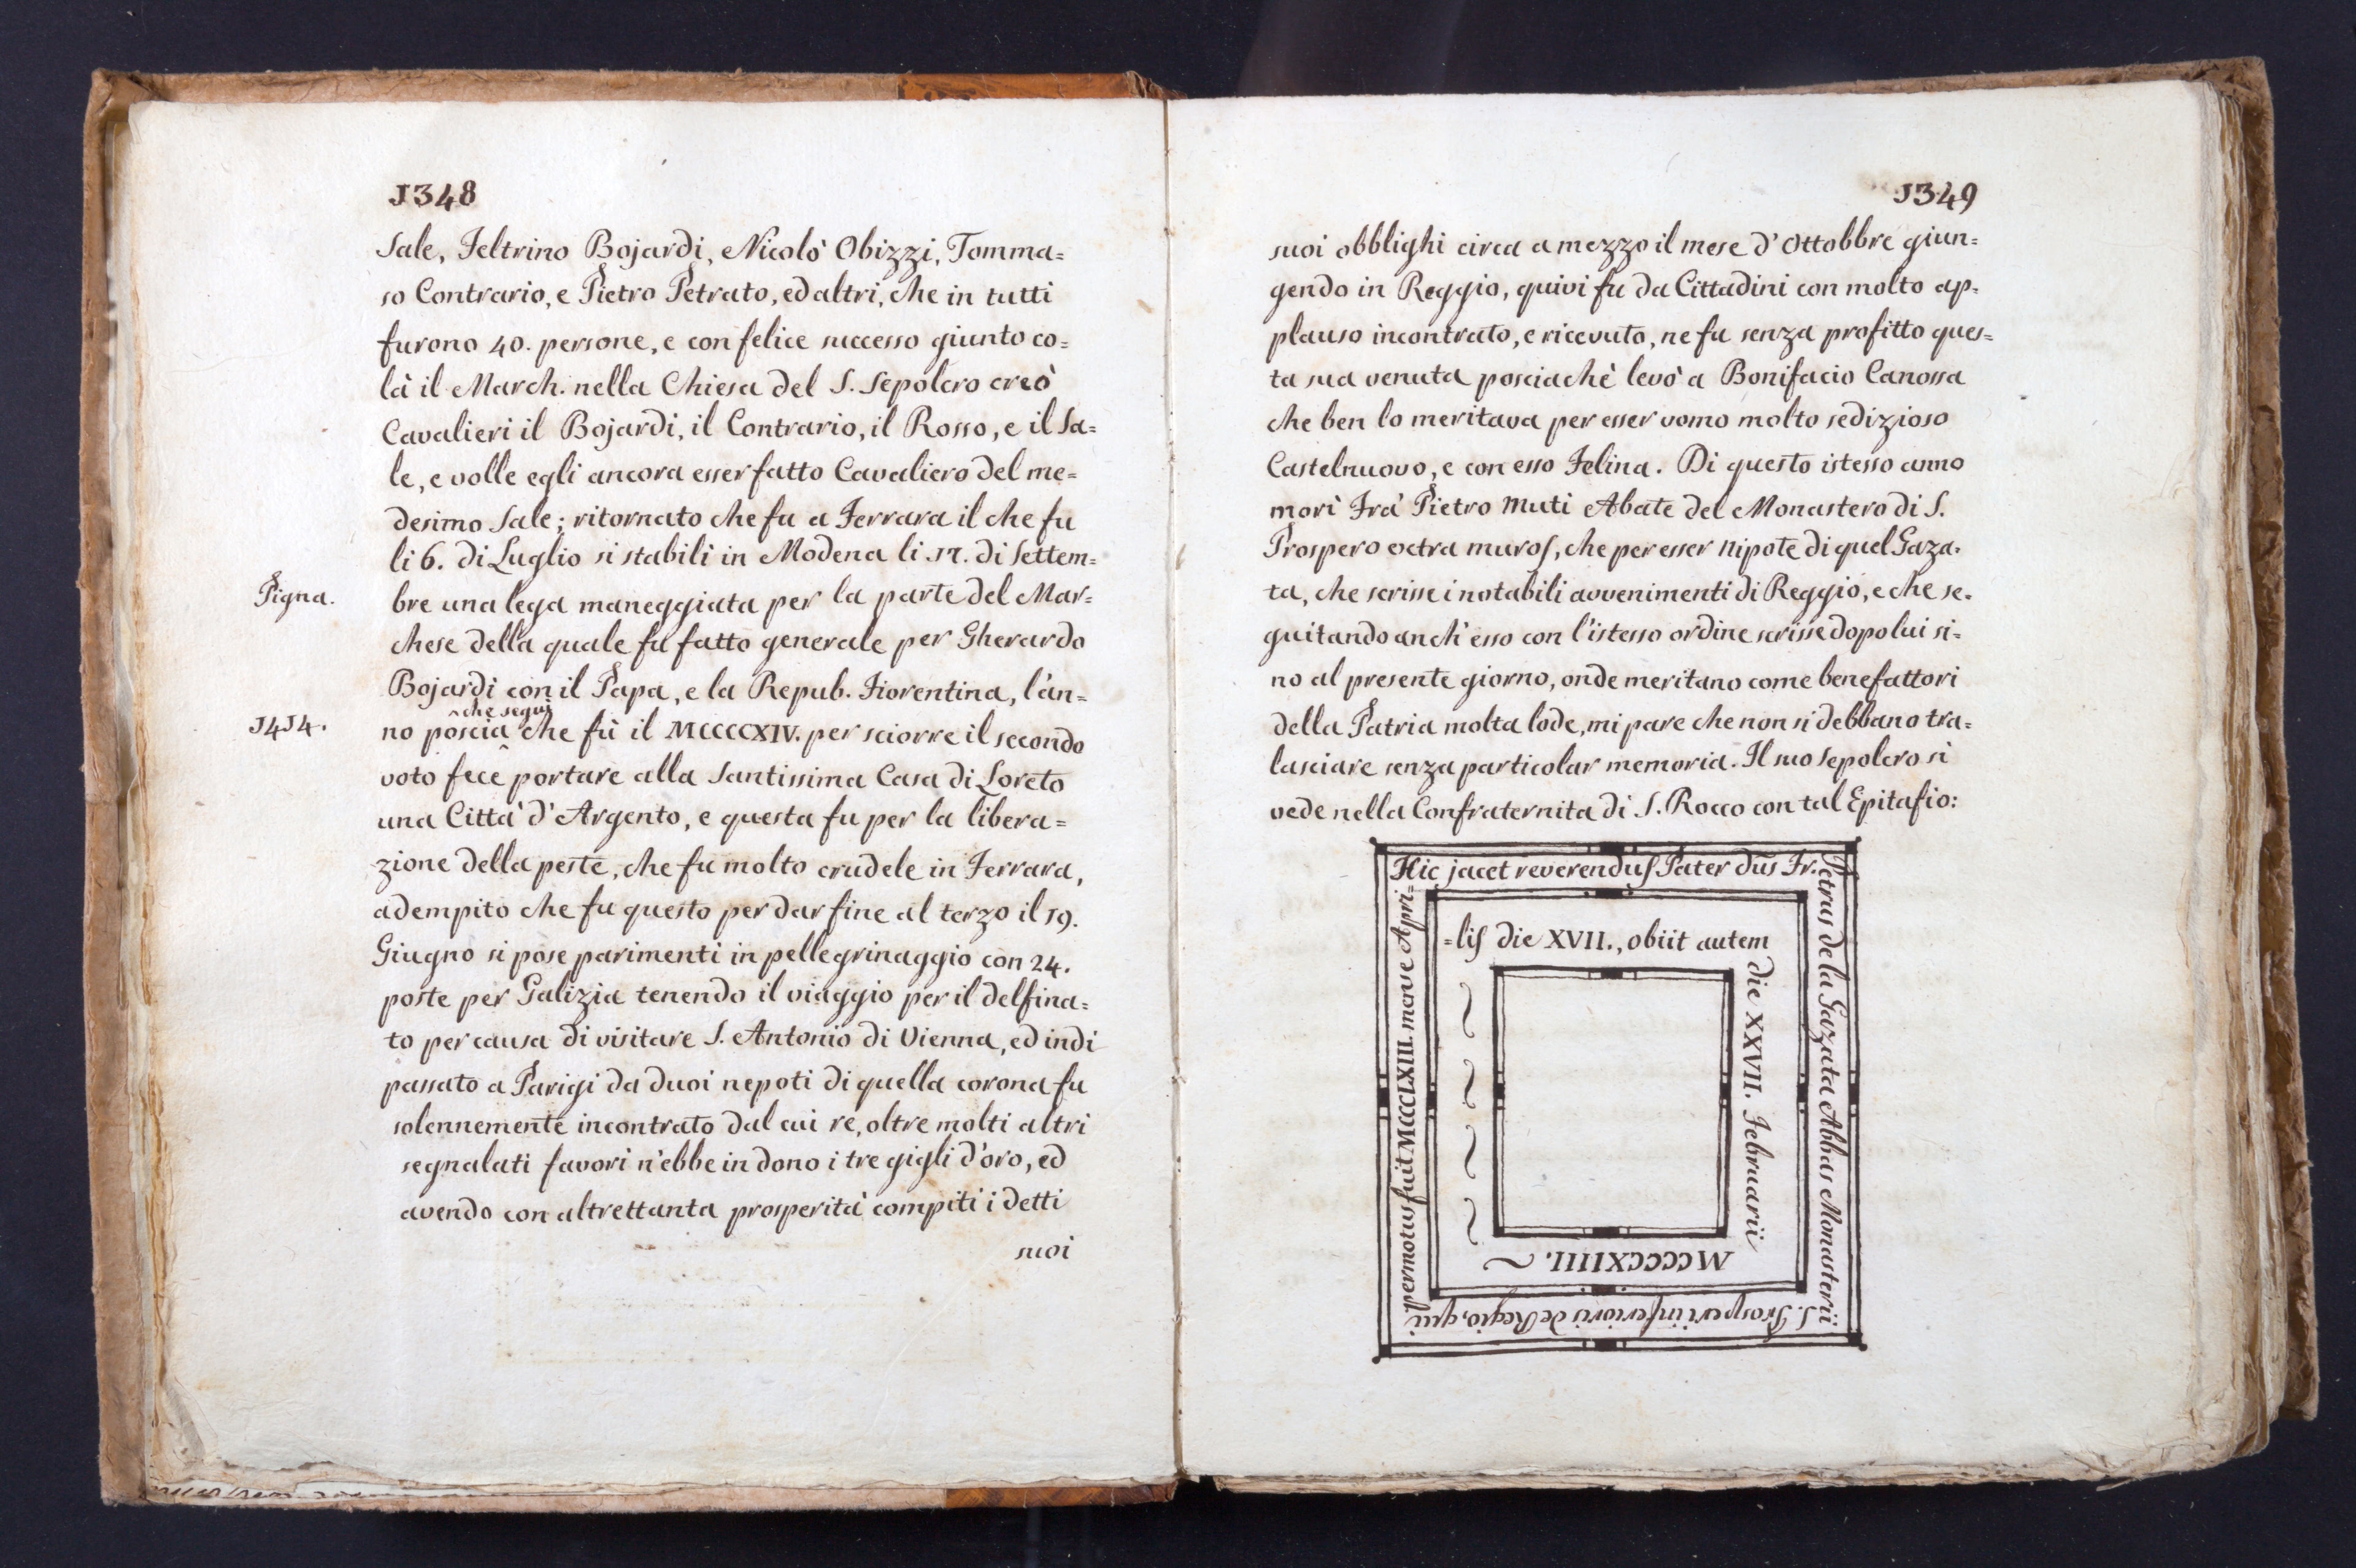 1348
Sale, Feltrino Bojardi, Nicolò Obizzi, Tomma=
so Contrario, e Pietro Petrato, ed altri, che in tutti
furono 40. persone, e con felice successo giunto co=
là il March. nella Chiesa del S. Sepolcro creò
Cavalieri il Bojardi, il Contrario, il Rosso, e il Sa=
le, e volle egli ancora esser fatto Cavaliero del me=
desimo Sale; ritornato che fu a Ferrara il che fu
li 6. di Luglio si stabilì in Modena li 17. di Settem=
Pigna.
bre una lega maneggiata per la parte del Mar=
chese della quale fu fatto generale per Gherardo
Bojardi con il Papa, e la Repub. Fiorentina, l'an=
che seguì
1414.
no poscia che fù il MCCCCXIV. per sciorre il secondo
voto fece portare alla Santissima Casa di Loreto
una Città d'Argento, e questa fu per la libera=
zione della peste, che fu molto crudele in Ferrara,
adempito che fu questo per dar fine al terzo il 19.
Giugno si pose parimenti in pellegrinaggio con 24.
poste per Galizia tenendo il viaggio per il delfina=
to per causa di visitare S. Antonio di Vienna, ed indi
passato a Parigi da duoi nepoti di quella corona fu
solennemente incontrato dal cui re, oltre molti altri
segnalati favori n'ebbe in dono i tre gigli d'oro, ed
avendo con altrettanta prosperità compiti i detti
suoi
1349
suoi obblighi circa a mezzo il mese d'Ottobbre giun=
gendo in Reggio, quivi fu da Cittadini con molto ap=
plauso incontrato, e ricevuto, ne fu senza profitto ques=
ta sua venuta posciachè levò a Bonifacio Canossa
che ben lo meritava per esser uomo molto sedizioso
Castelnuovo, e con esso Felina. Di questo istesso anno
morì Frà Pietro Muti Abate del Monastero di S.
Prospero extra muros, che per esser Nipote di quel Gaza=
ta, che scrisse i notabili avvenimenti di Reggio, e che se=
guitando anch'esso con l'istesso ordine scrisse dopo lui si=
no al presente giorno, onde meritano come benefattori
della Patria molta lode, mi pare che non si debbano tra=
lasciare senza particolar memoria. Il suo Sepolcro si
vede nella Confraternita di S. Rocco con tal Epitafio:
Hic jacet reverendus Pater dūs Fr.
Petrus de la Gazata Abbas Monasterii
S. Prosperi inferioris de Regio, qui
permotus fuit MCCCLXIII. mense Apri=
=lis die XVII., obiit autem
die XXVII. Februarii
MCCCCXIIII.